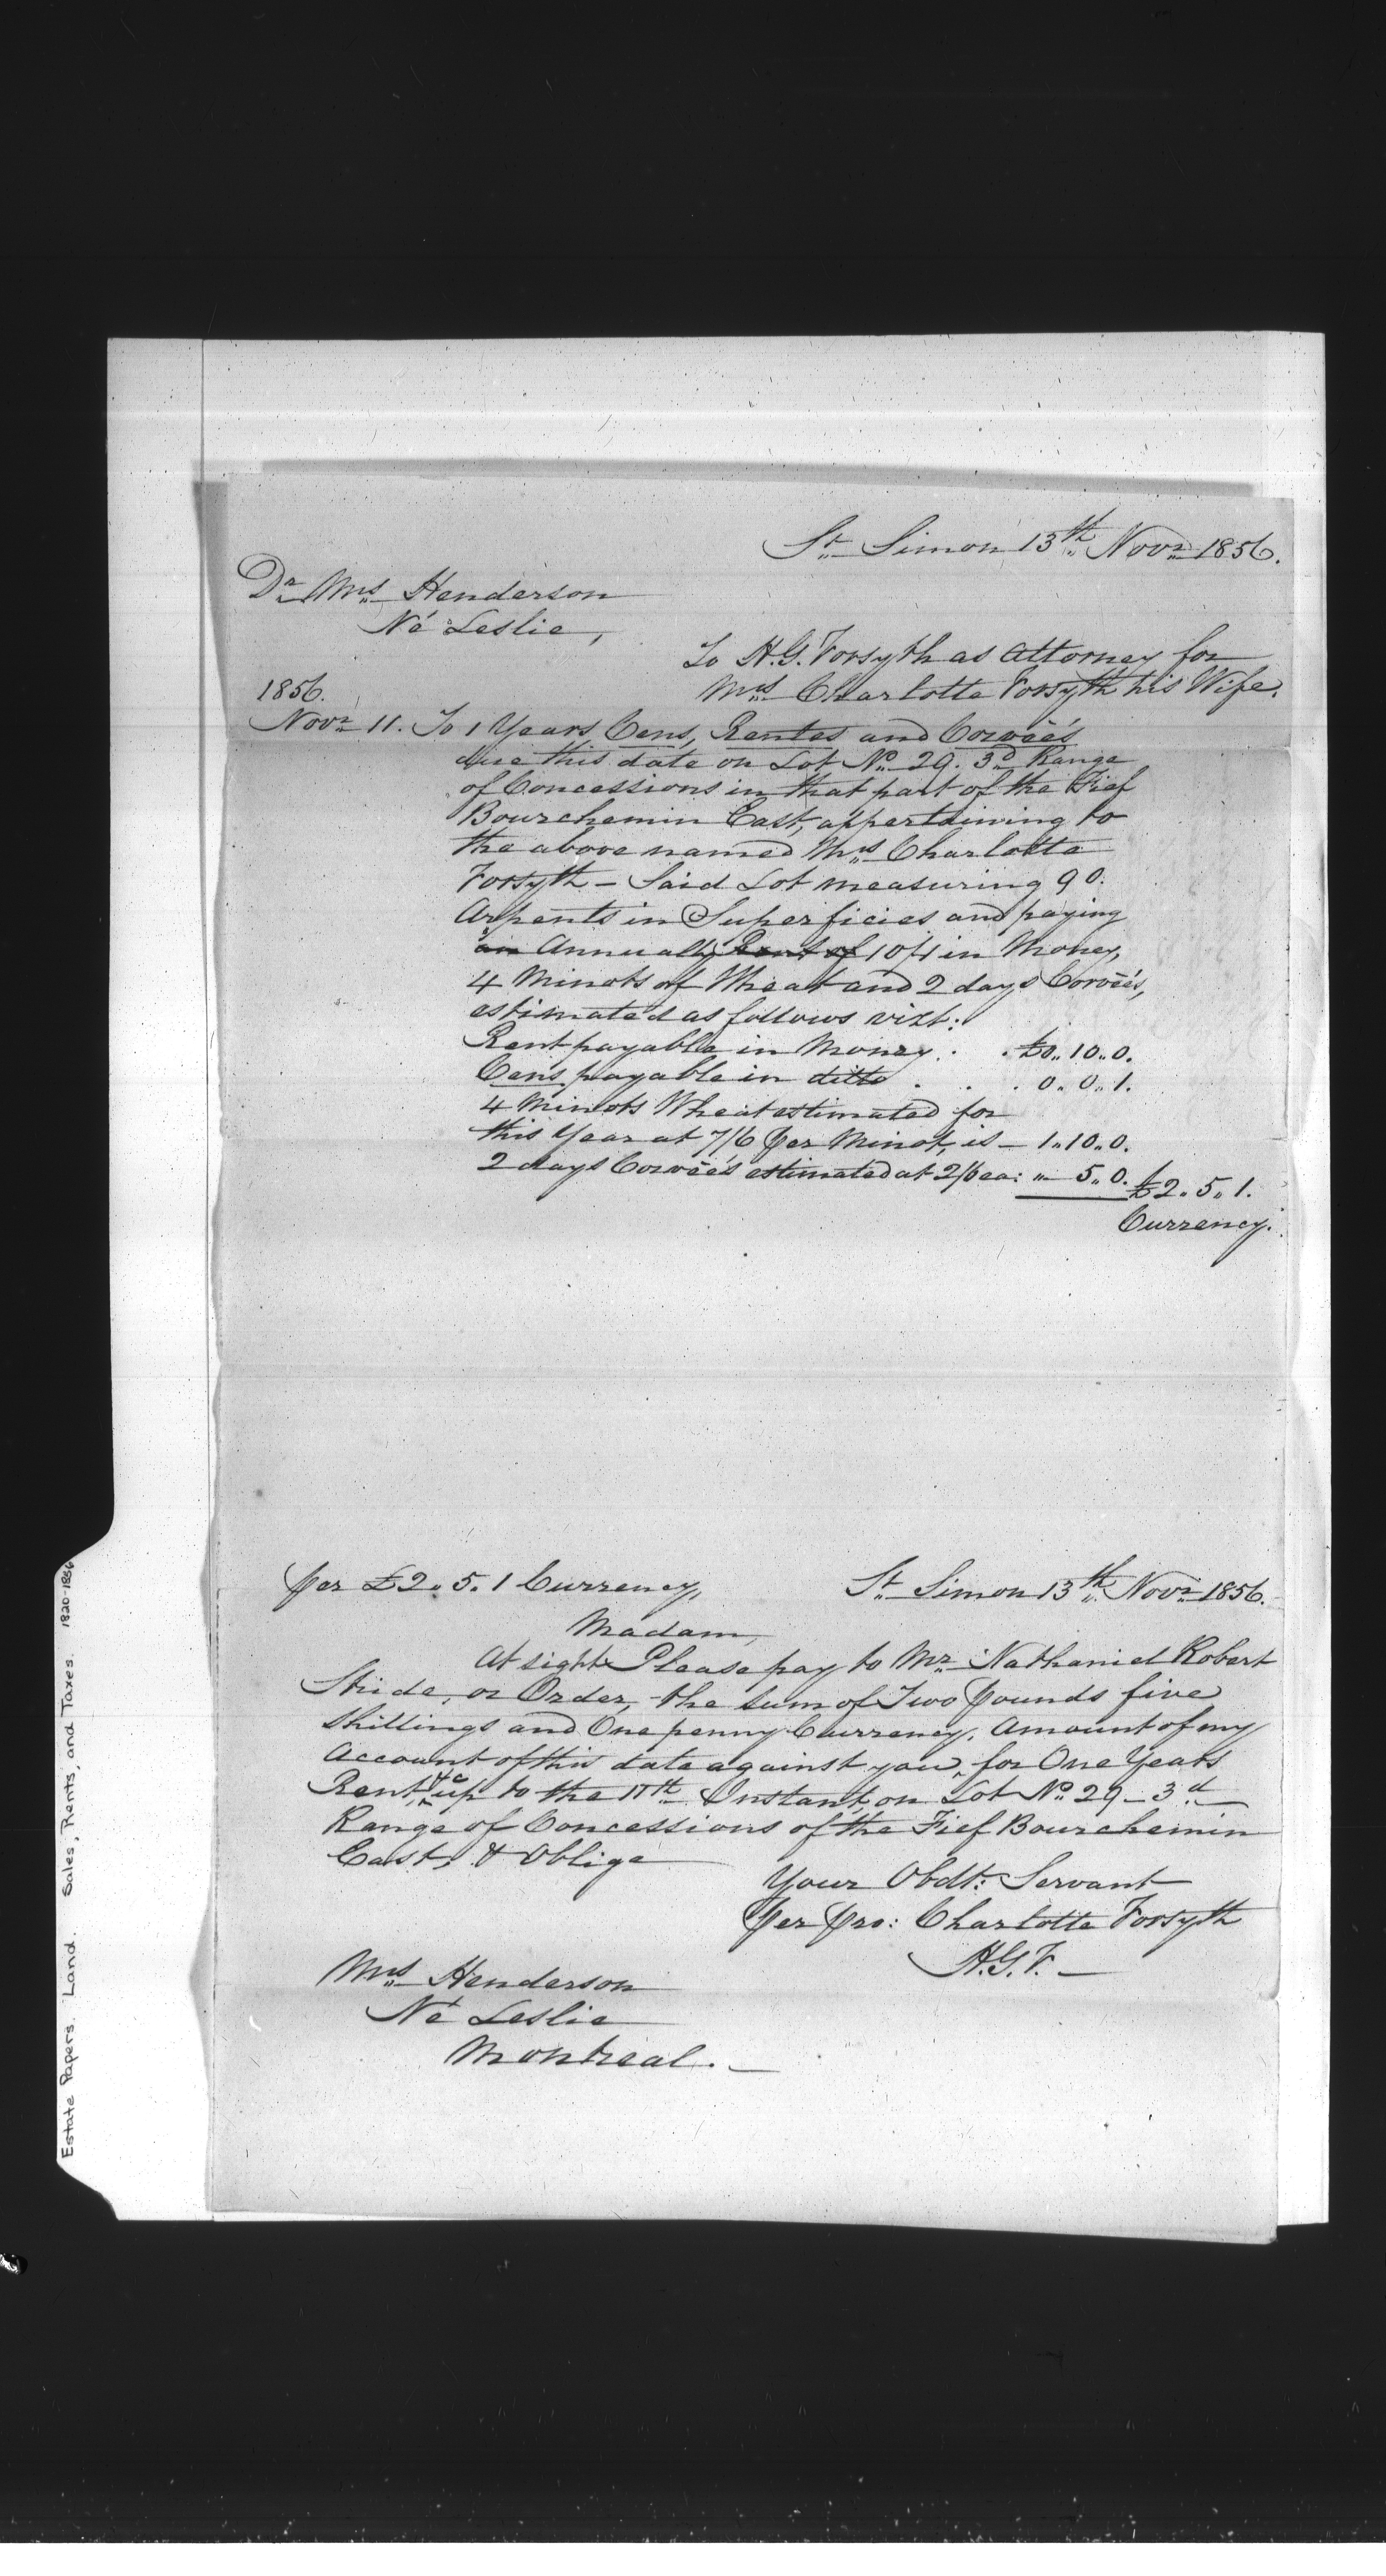 St. Simon 13th Novr. 1856.
Dr. Mrs. Henderson
Né Leslie,
To H.G. Forsyth as Attorney for
Mrs. Charlotte Forsyth his Wife.
1856.
Novr. 11. To 1 Years Cens, Rentes and Corvéés
due this date on Lot No. 29. 3rd Range
of Concessions in that part of the Fief
Bourchemin East, appertaining to
the above named Mrs. Charlotte
Forsyth - Said Lot measuring 90.
Arpents in Superficies and paying
an Annually Rent of 10/1 in Money,
4 Minots of Wheat and 2 days Corvéés,
estimated as follows vizt:
Rent payable in Money . . £0.. 10.. 0.
Cens payable in ditto . . . 0. 0. 1.
4 Minots Wheat estimated for
this Year at 7/6 per Minot, is - 1.. 10.. 0.
2 days Corvéés estimated at 2/6 ea: " 5.. 0. £2. 5. 1.
Currency.
per £2. 5. 1 Currency, St. Simon 13th Novr. 1856.
Madam,
At sight Please pay to Mr. Nathaniel Robert
Stride, or Order, the sum of Two pounds five
shillings and One penny Currency. Amount of my
Account of this date against you, for One Years
Rent, &c up to the 11th Instant, on Lot No. 29 - 3d
Range of Concessions of the Fief Bourchemin
East, & Oblige
Your Obdt: Servant
per pro: Charlotte Forsyth
H.G.F. -
Mrs. Henderson
Né Leslie
Montreal. -
Estate Papers. Land. Sales, Rents, and Taxes. 1820-1856